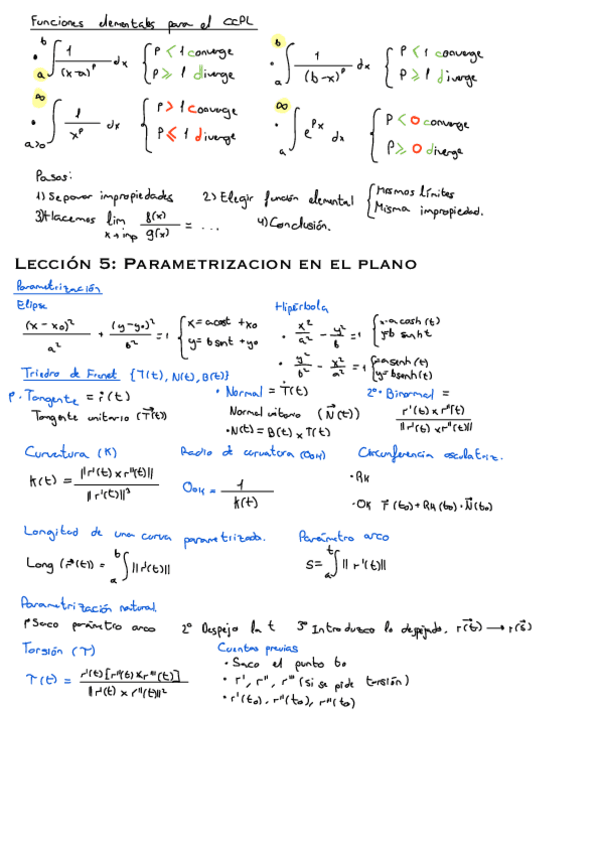 Funciones elementales para el CCPL
• ∫_a^b 1/(x-a)^p dx { P < 1 converge
P ≥ 1 diverge
• ∫_a^b 1/(b-x)^p dx { P < 1 converge
P ≥ 1 diverge
• ∫_{a>0}^∞ 1/x^p dx { P > 1 converge
P ≤ 1 diverge
• ∫_a^∞ e^{px} dx { P < 0 converge
P ≥ 0 diverge
Pasos:
1) Separar impropiedades 2) Elegir función elemental { Mismos límites
Misma impropiedad.
3) Hacemos lim x→imp f(x)/g(x) = ... 4) Conclusión.
Lección 5: Parametrizacion en el plano
Parametrización
Elipse
(x-x₀)²/a² + (y-y₀)²/b² = 1 { x = a cost + x₀
y = b sint + y₀
Hipérbola
• x²/a² - y²/b² = 1 { x = a cosh(t)
y = b senh t
• y²/b² - x²/a² = 1 { x = a senh(t)
y = b senh(t)
Triedro de Frenet {T(t), N(t), B(t)}
1º • Tangente = ṙ(t)
Tangente unitario (T⃗(t))
• Normal = Ṫ(t)
Normal unitario (N⃗(t))
• N(t) = B(t) x T(t)
2º • Binormal =
r'(t) x r''(t) / ||r'(t) x r''(t)||
Curvatura (K)
K(t) = ||r'(t) x r''(t)|| / ||r'(t)||³
Radio de curvatura (OOK)
OOK = 1/K(t)
Circunferencia osculatriz.
• RK
• OK r⃗(t₀) + RK(t₀) · N⃗(t₀)
Longitud de una curva parametrizada.
Long (r⃗(t)) = ∫_a^b ||r'(t)||
Parámetro arco
S = ∫_a^t ||r'(t)||
Parametrización natural.
1º Saco parámetro arco 2º Despejo la t 3º Introduzco lo despejado. r⃗(t) → r⃗(s)
Torsión (T)
T(t) = r'(t)[r''(t) x r'''(t)] / ||r'(t) x r''(t)||²
Cuentas previas
• Saco el punto t₀
• r', r'', r''' (si se pide torsión)
• r'(t₀), r''(t₀), r'''(t₀)